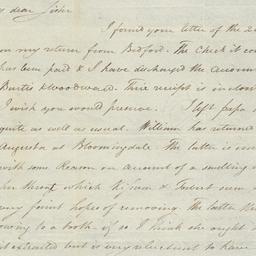 y dear Sister
I found your letter of the 2
on my return from Bedford. The check it con
has been paid & I have discharged the accoun
Burtis & Woodward. Their receipt is inclos
I wish you would preserve. I left papa
quite as well as usual. William has returned
Augusta at Bloomingdale. The latter is
with some reason on account of a swelling
her throat which Kissam & Hubert seem
very faint hopes of removing. The latter th
owing to a tooth if so I think she ought
it extracted but is very reluctant to have